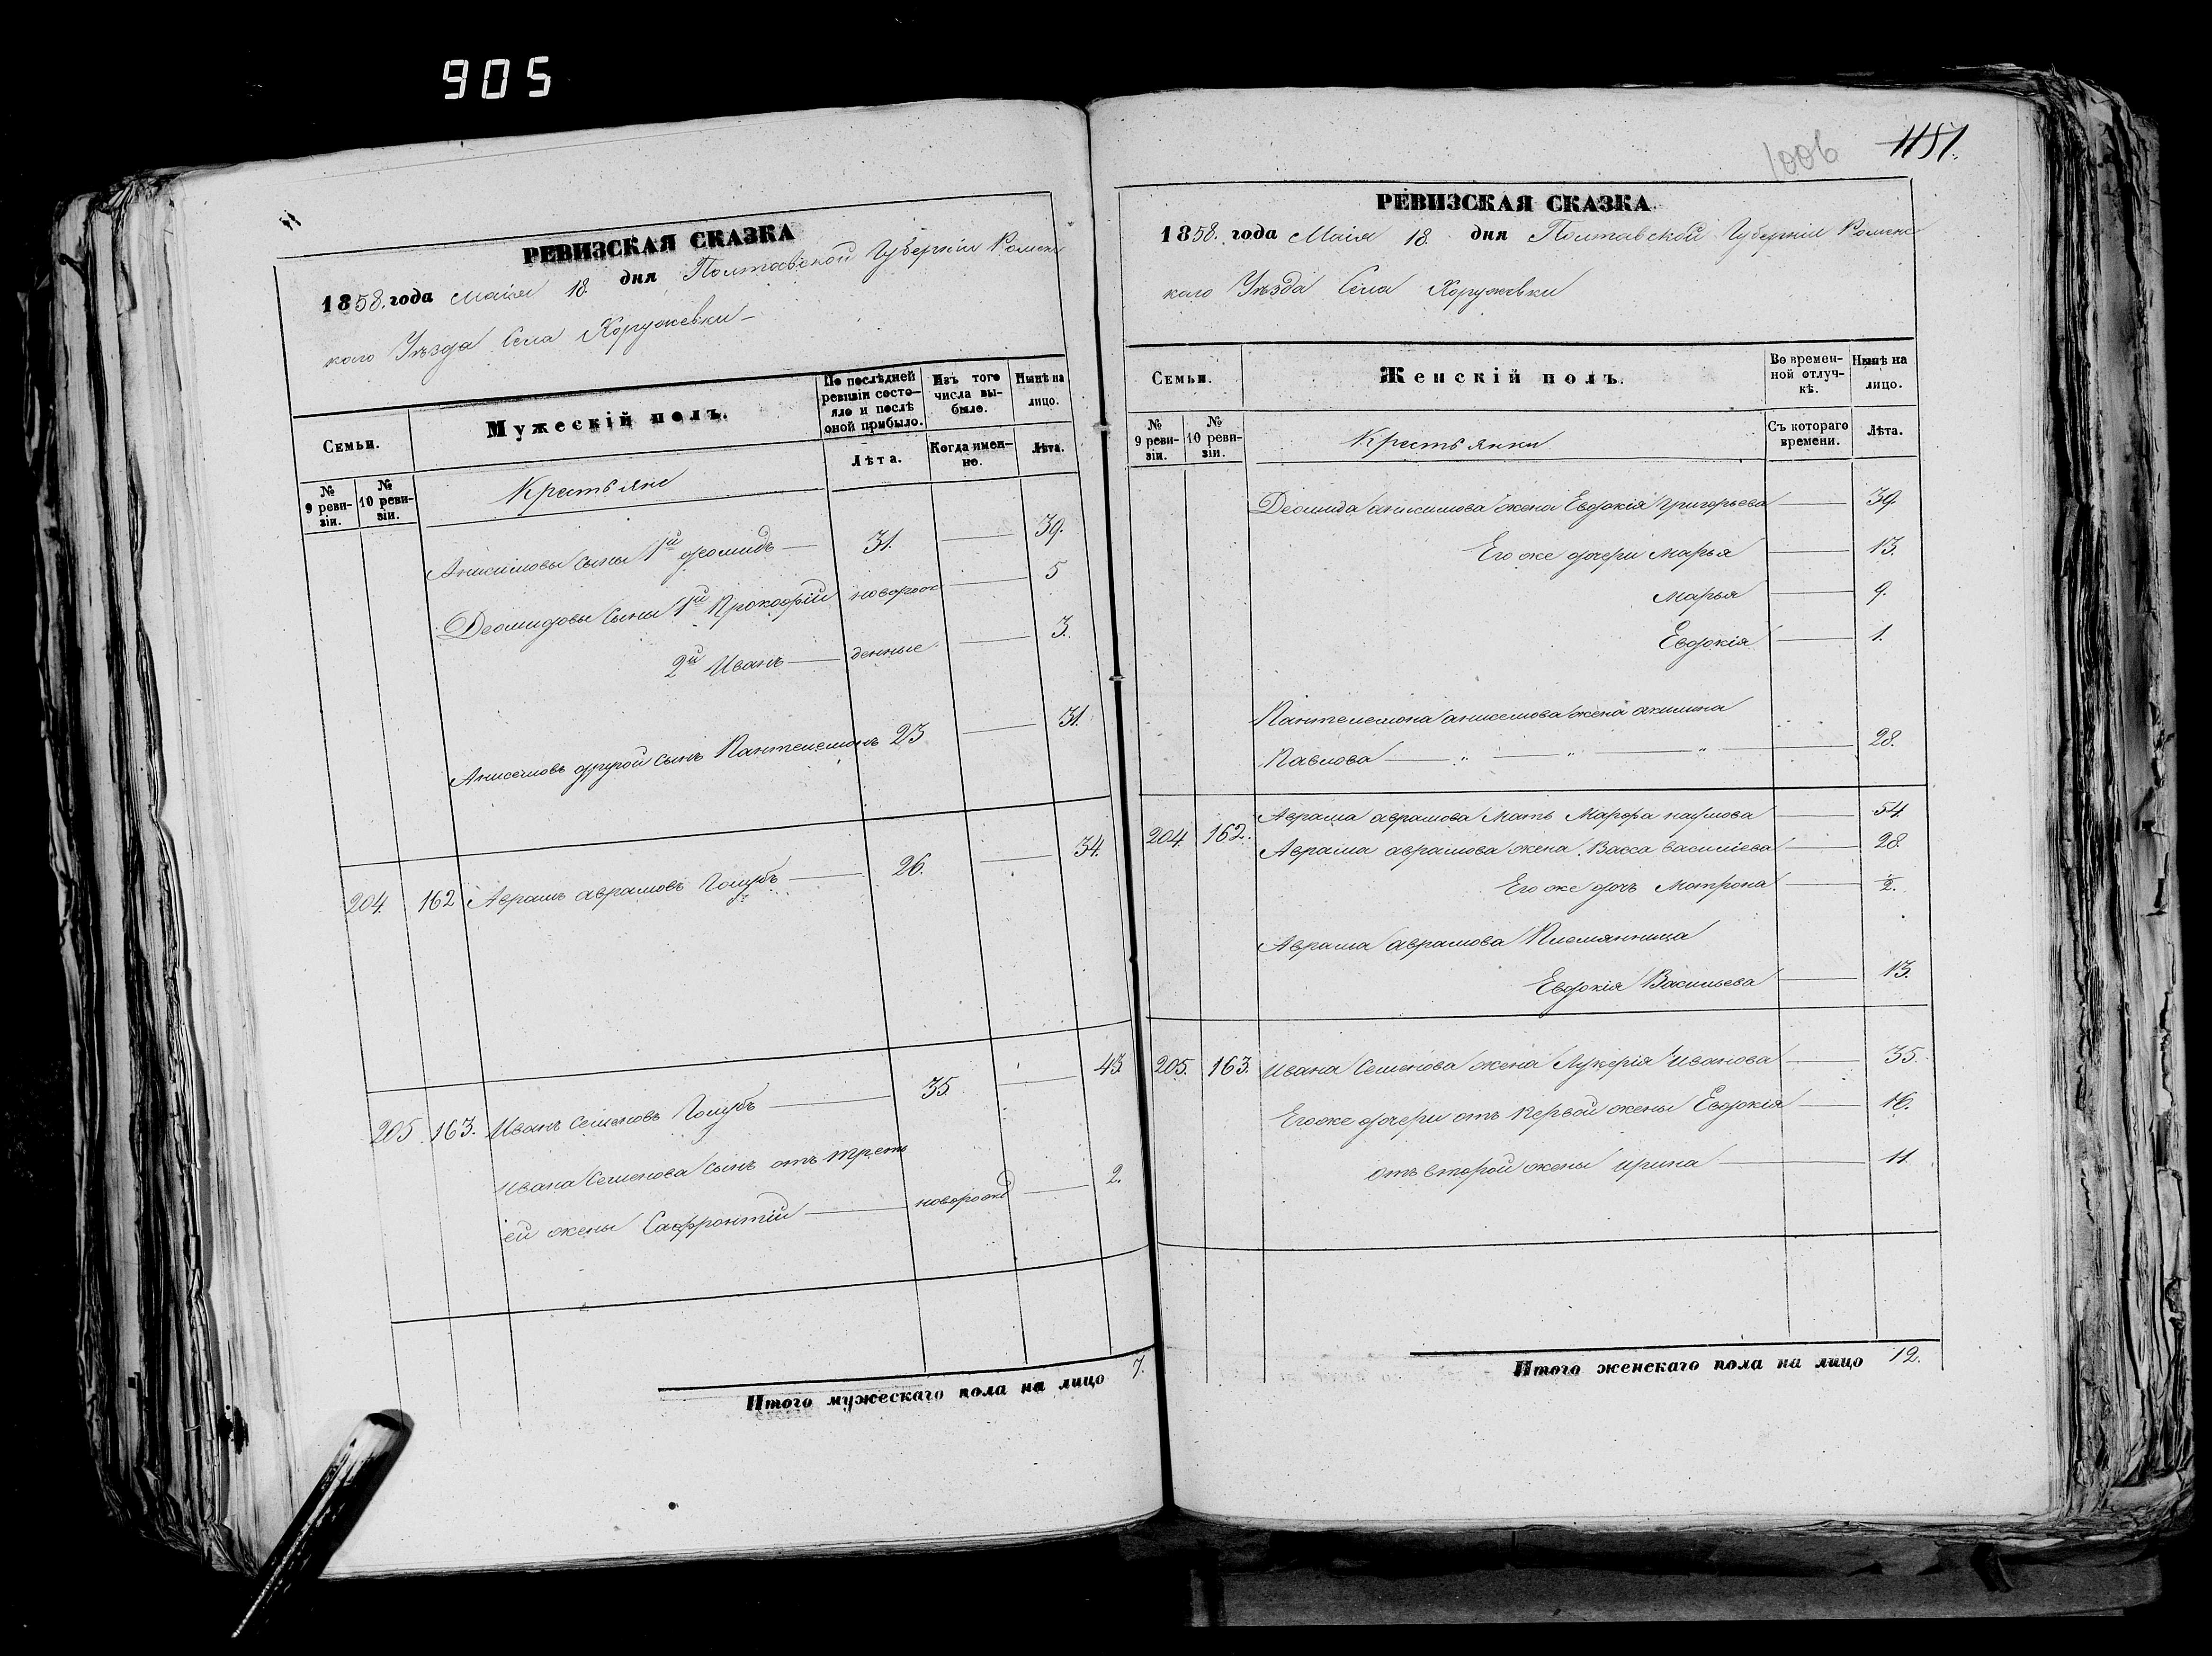 905
РЕВИЗСКАЯ СКАЗКА
1858. года Маія 18. дня Полтавской Губерніи Роменс
каго Уѣзда Села Коружевки
Семьи.
Мужескій полъ.
По послѣдней ревизіи состо-
яло и послѣ оной прибыло.
Изъ того числа вы-
было.
Нынѣ на лицо.
№ 9 реви-
зіи.
№ 10 реви-
зіи.
Крестьяне
Лѣта.
Когда имен-
но.
Лѣта.
Анисимовы сыны 1й Деомидъ — 31. — 39.
Деомидовы сыны 1й Прокофій новорож — 5
2й Иванъ — денные — 3.
Анисимовъ другой сынъ Пантелемонъ 23 — 31.
204. 162 Аврамъ Аврамовъ Голубъ — 26. — 34.
205 163. Иванъ Семеновъ Голубъ — 35. — 43.
Ивана Семенова сынъ отъ треть
ей жены Сафронтій — новорожд — 2.
Итого мужескаго пола на лицо 7.
1006 1151.
РЕВИЗСКАЯ СКАЗКА
1858. года Маія 18. дня Полтавской Губерніи Роменс
каго Уѣзда Села Коружевки
Семьи.
Женскій полъ.
Во времен-
ной отлуч-
кѣ.
Нынѣ на лицо.
№ 9 реви-
зіи.
№ 10 реви-
зіи.
Крестьянки
Съ котораго времени.
Лѣта.
Деомида Анисимова жена Евдокія Григорьева — 39.
Его же дочери Марья — 13.
Марья — 9.
Евдокія — 1.
Пантелемона Анисимова жена Акилина
Павлова — " — " — " — 28.
Аврама Аврамова Мать Марфа Наумова — 54.
204 162. Аврама Аврамова жена Васса Васильева — 28
Его же дочь Мотрона — ½.
Аврама Аврамова Племянница
Евдокія Васильева — 13.
205. 163. Ивана Семенова жена Лукерія Иванова — 35.
Его же дочери отъ первой жены Евдокія — 16.
отъ второй жены Ирина — 11.
Итого женскаго пола на лицо 12.